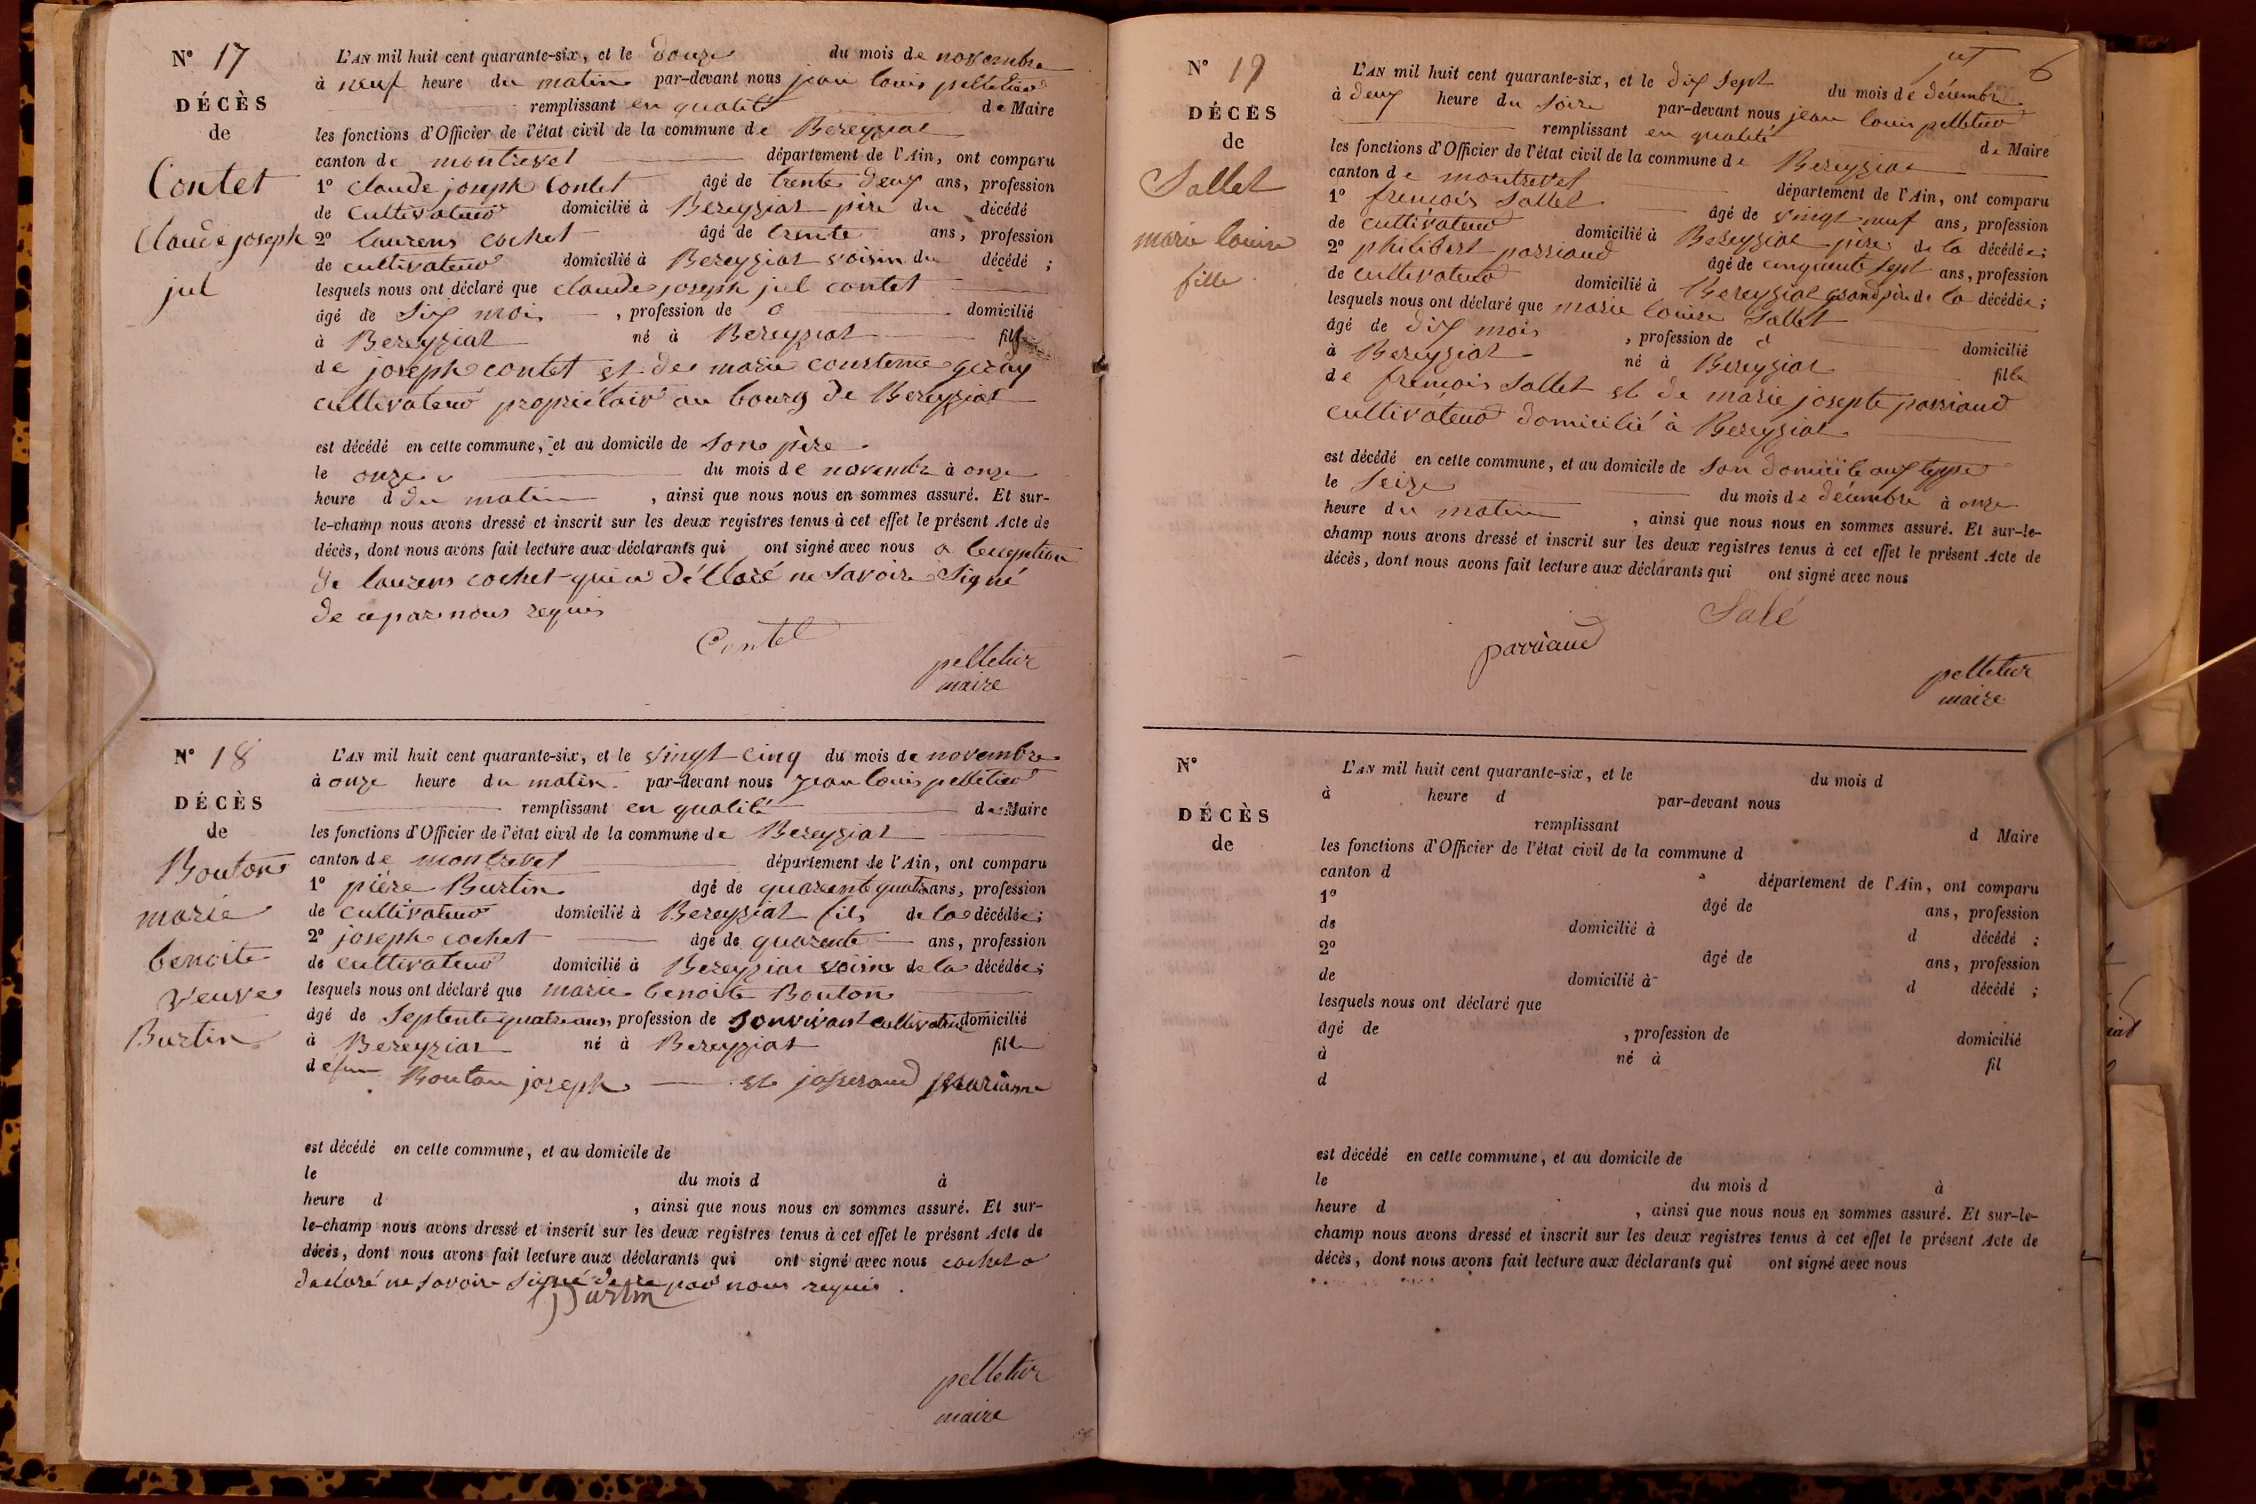 N° 17
DÉCÈS
de
Contet
Claude joseph
jul
L'AN mil huit cent quarante-six, et le douze du mois de novembre
à neuf heure du matin par-devant nous jean louis pelletier
remplissant en qualité de Maire
les fonctions d'Officier de l'état civil de la commune de Bereyziat
canton de montrevel département de l'Ain, ont comparu
1° Claude joseph Contet âgé de trente deux ans, profession
de cultivateur domicilié à Bereyziat père du décédé
2° laurens cochet âgé de trente ans, profession
de cultivateur domicilié à Bereyziat voisin du décédé ;
lesquels nous ont déclaré que claude joseph jul contet
âgé de Six mois , profession de o domicilié
à Bereyziat né à Bereyziat fils
de joseph contet et de marie constense geray
cultivateur propriétair au bourg de Bereyziat
est décédé en cette commune, et au domicile de Son père
le onze du mois de novembre à onze
heure d du matin , ainsi que nous nous en sommes assuré. Et sur-
le-champ nous avons dressé et inscrit sur les deux registres tenus à cet effet le présent Acte de
décès, dont nous avons fait lecture aux déclarants qui ont signé avec nous a l'exception
de laurens cochet qui a déclaré ne Savoir Signé
de ce par nous requis
Contet
pelletier
maire
N° 18
DÉCÈS
de
Bouton
marie
benoite
veuve
Burtin
L'AN mil huit cent quarante-six, et le vingt cinq du mois de novembre
à onze heure du matin par-devant nous jean louis pelletier
remplissant en qualité de Maire
les fonctions d'Officier de l'état civil de la commune de Bereyziat
canton de montrevel département de l'Ain, ont comparu
1° pière Burtin âgé de quarente quatre ans, profession
de cultivateur domicilié à Bereyziat fils de la décédée ;
2° joseph cochet âgé de quarente ans, profession
de cultivateur domicilié à Bereyziat voisin de la décédée ;
lesquels nous ont déclaré que marie benoite Bouton
âgé de Septente quatre ans, profession de Son vivant cultivateur domicilié
à Bereyziat né à Bereyziat fille
défun Bouton joseph et josserand Marianne
est décédé en cette commune, et au domicile de
le du mois d à
heure d , ainsi que nous nous en sommes assuré. Et sur-
le-champ nous avons dressé et inscrit sur les deux registres tenus à cet effet le présent Acte de
décès, dont nous avons fait lecture aux déclarants qui ont signé avec nous cochet a
déclaré ne Savoir Signé de ce par nous requis
Burtin
pelletier
maire
6
N° 19
DÉCÈS
de
Sallet
marie louise
fille
L'AN mil huit cent quarante-six, et le dix Sept du mois de décembre
à deux heure du Soire par-devant nous jean louis pelletier
remplissant en qualité de Maire
les fonctions d'Officier de l'état civil de la commune de Bereyziat
canton de montrevel département de l'Ain, ont comparu
1° frencois Sallet âgé de vingt neuf ans, profession
de cultivateur domicilié à Bereyziat père de la décédée ;
2° philibert parriaud âgé de cinquente Sept ans, profession
de cultivateur domicilié à Bereyziat grand père de la décédée ;
lesquels nous ont déclaré que marie louise Sallet
âgé de dix mois , profession de o domicilié
à Bereyziat né à Bereyziat fille
de frencois Sallet et de marie josepte parriaud
cultivateur domicilié à Bereyziat
est décédé en cette commune, et au domicile de Son domicile aux
le Seize du mois de décembre à onze
heure du matin , ainsi que nous nous en sommes assuré. Et sur-le-
champ nous avons dressé et inscrit sur les deux registres tenus à cet effet le présent Acte de
décès, dont nous avons fait lecture aux déclarants qui ont signé avec nous
Salé
parriaud
pelletier
maire
N°
DÉCÈS
de
L'AN mil huit cent quarante-six, et le du mois d
à heure d par-devant nous
remplissant d Maire
les fonctions d'Officier de l'état civil de la commune d
canton d département de l'Ain, ont comparu
1° âgé de ans, profession
de domicilié à d décédé ;
2° âgé de ans, profession
de domicilié à d décédé ;
lesquels nous ont déclaré que
âgé de , profession de domicilié
à né à fil
d
est décédé en cette commune, et au domicile de
le du mois d à
heure d , ainsi que nous nous en sommes assuré. Et sur-le-
champ nous avons dressé et inscrit sur les deux registres tenus à cet effet le présent Acte de
décès, dont nous avons fait lecture aux déclarants qui ont signé avec nous